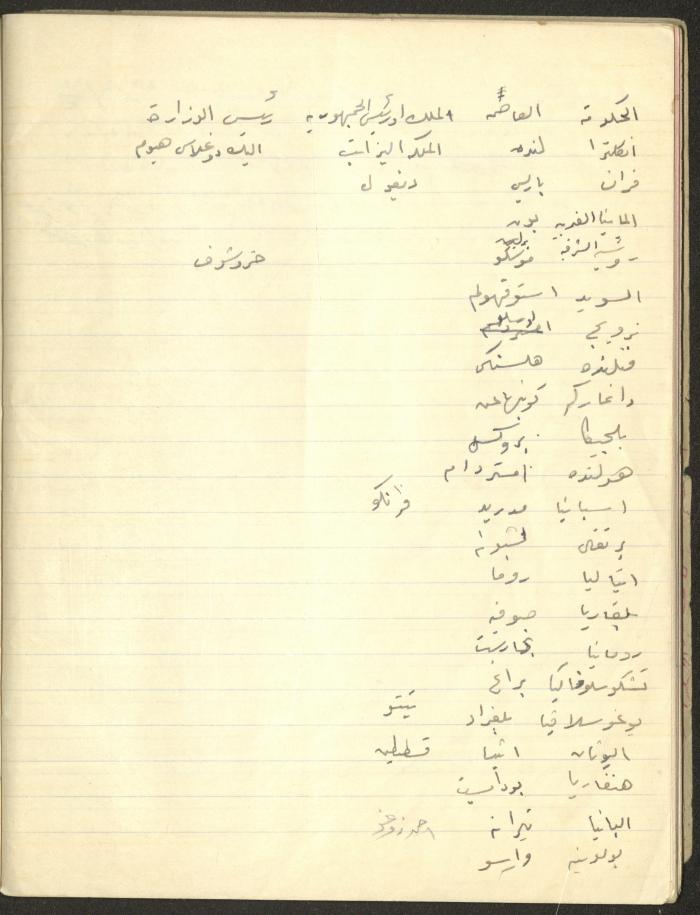 الحكومة العاصمة الملك او رئيس الجمهورية رئيس الوزارة
انكلترا لندن الملكه اليزابت اليك دوغلاس هيوم
فران باريس ديغول
المانيا الغربية بون
الشرقية برلين
روسيه موسكو خروشوف
السويد استوقهولم
نرويج اوسلو
فنلنده هلسنكي
دانمارك كوبنهاغن
بلجيكا بروكسل
هولنده امستردام
اسبانيا مدريد فرانكو
برتقال لشبونه
ايتاليا روما
بلغاريا صوفيه
رومانيا بخارست
تشكوسلوفاكيا براغ
يوغوسلافيا بلغراد تيتو
اليونان اثينا قسطنطين
هنغاريا بودابست
البانيا تيرانه احمد زوغو
بولونيه وارسو